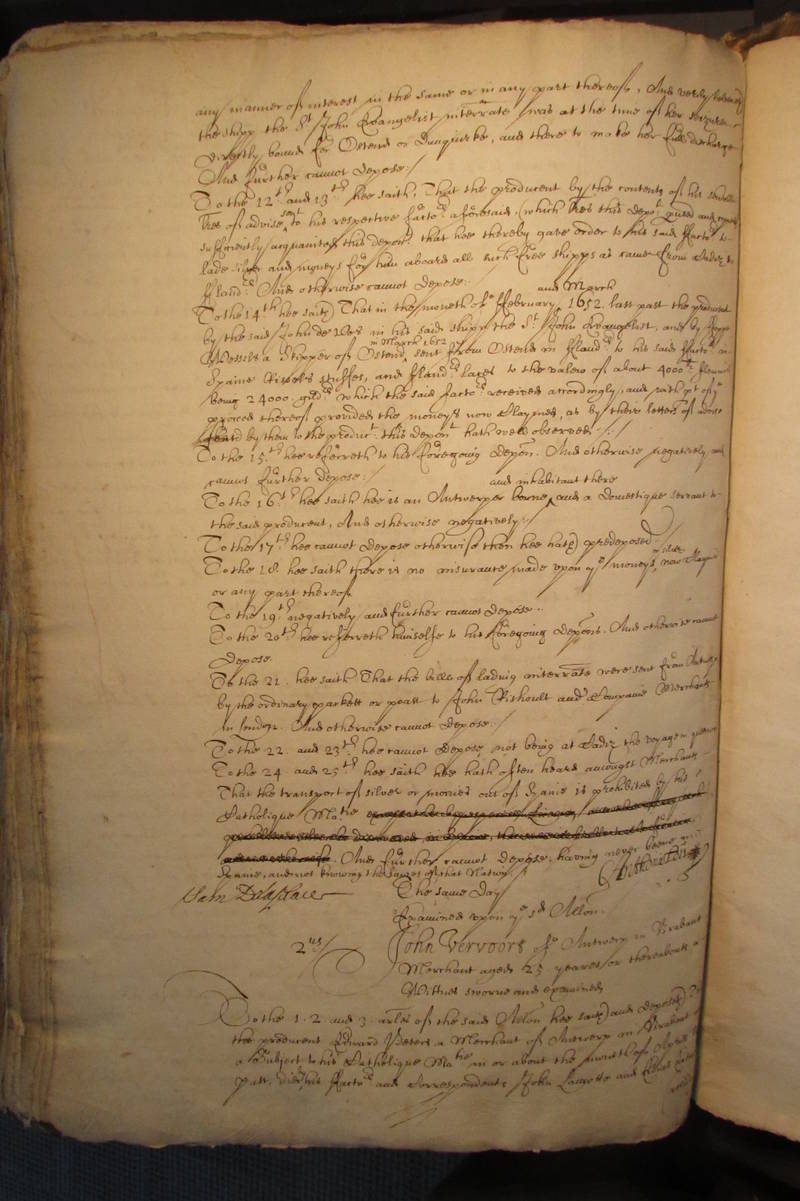 any manner of interest in the same or in any part thereof, And verily beleeveth
the shipp the St John Evangelist interrate was at the time of her seizure
directly bound for Ostend or Dunquirke, and there to make her full discharge
And further cannot depose./
To the 12th and 13th hee saith, That the producent by the contents of his severall
lres of advise sent to his respective factors aforesaid, (which lres this depont
sufficiently acquainted this deponent that hee thereby gave order to his said factors to
lade silver and moneys for him aboard all such free shipps as came from Cadiz to
Flandrs And otherwise cannot depose.
To the 14th hee saith That in the moneth of February and March 1652 last past the producent
by the said John de Bos in his said shipp the St John Evangelist, and by
Wessels a Skipper of Ostend, in March 1652 sent from Ostend in Flandrs to his said factors in
Spaine stuffes, and Flandrs laces to the valew of about 4000 li flemish
being 24000 gilds which the said factors received accordingly, and with pt of ye
proceed thereof provided the moneys now claymed, as by their letters of advise
sent by them to the product this depont hath observed./
To the 15th hee referreth to his foregoing depon. And otherwise negatively and
cannot further depose./
To the 16th hee saith hee is an Antwerper borne and inhabitant there and a domestique servant to
the said producent, And otherwise negatively./
To the 17th hee cannot depose otherwise then hee hath predeposed
To the 18. hee saith there is no insurance made upon ye moneys, or silver now claymed
or any part thereof
To the 19th negatively and further cannot depose.
To the 20th hee referreth himselfe to his foregoing depons. And otherwise cannot
depose.
To the 21. hee saith That the bills of lading interrate were sent from Antwerp
by the ordinary packett or poast to John and Companie Merchants
in London. And otherwise cannot depose./
To the 22. and 23th hee cannot depose not being at Cadiz the voyage in question
To the 24. and 25th hee saith hee hath often heard amongst Merchants
That the transport of silver or monies out of Spaine is prohibited by his
Catholique Matie
And further cannot depose, having never beene in
Spaine, and not knowing the lawes of that Nation.
John Delaplace
The same day
Examined upon ye sd Allon.
2us/
John Vervoors of Antwerp in Brabant
Merchant aged 25 yeares or thereabouts a
Witnes sworne and examined
To the 1. 2. and 3. arles of the said Allon hee saith and deposeth That
the producent Edward Peters a Merchant of Antwerp in Brabant
a Subject to his Catholique Matie in or about the moneth of
past, did his Factors and Correspondents John and